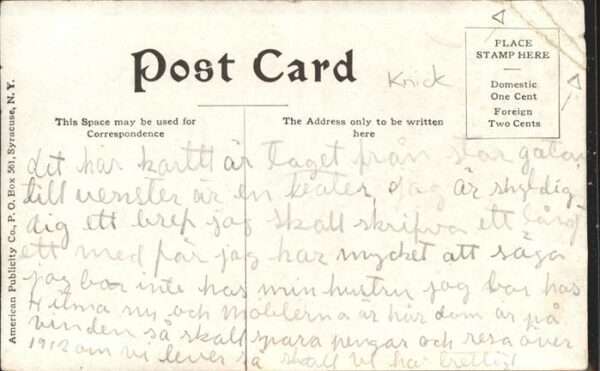 Post Card
Knick
PLACE
STAMP HERE
Domestic
One Cent
Foreign
Two Cents
This Space may be used for
Correspondence
The Address only to be written
here
American Publicity Co., P. O. Box 561, Syracuse, N. Y.
det här kartt är taget från stor gatan
till venster är en teater, jag är skyldig
dig ett bref jag skall skrifva ett lång
ett med för jag har mycket att säga
jag bor inte hos min hustru jag bor hos
Hilma nu och möblerna är här dom är på
vinden så skall spara pengar och resa över
1912 om vi lever så skall vi ha